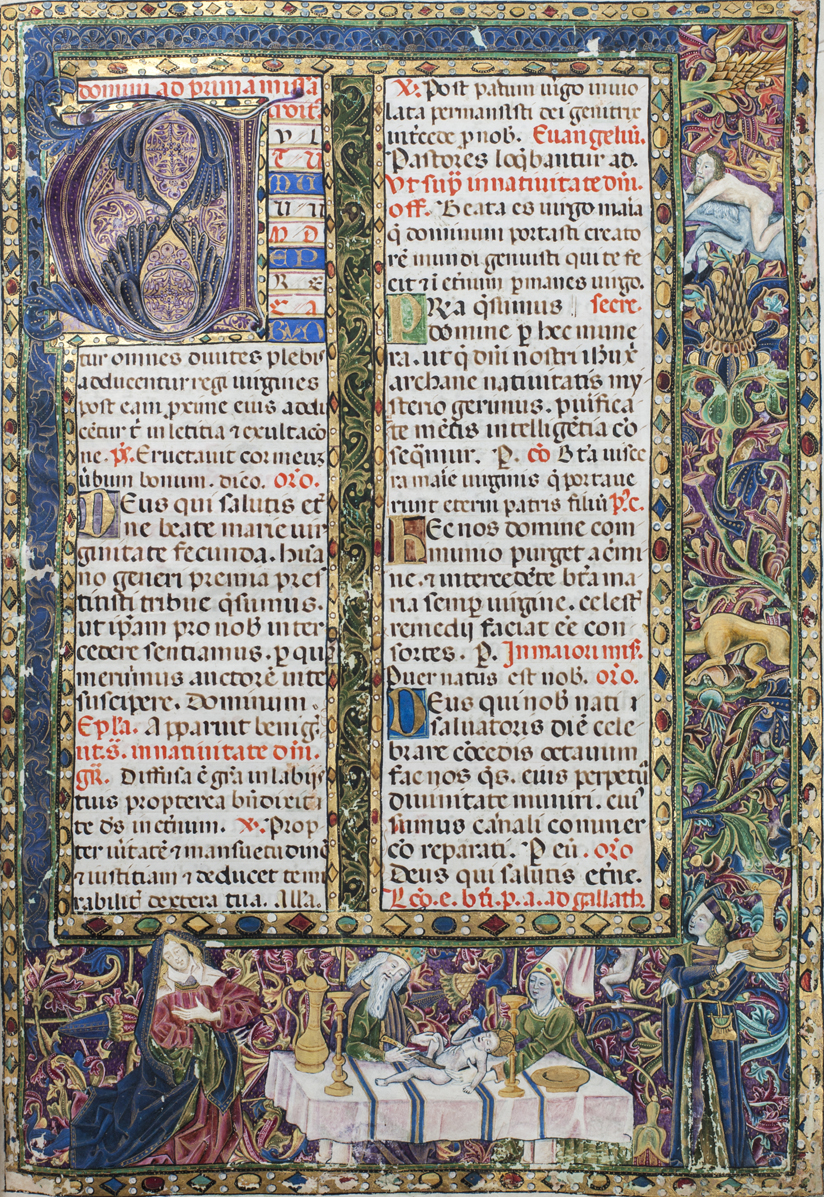 domini ad prima missa
UL
TU
MU
UU
MD
EP
RE
CA
BUN
tur omnes diuites plebis
adducentur regi uirgines
post eam proxime eius addu
centur t̄ in letitia ⁊ exultac̄o
ne. p̄s. Eructauit cor meuz
uerbum bonum. dico. or̄o.
DEus qui salutis et̄
ne beate marie uir
ginitate fecunda. hūa
no generi premia pres
titisti tribue q̄sumus.
ut ip̄am pro nob̄ inter
cedere sentiamus. p̱ quā
meruimus auctorē uite
suscipere. Dominum.
Ep̄la. Apparuit beniḡ.
ut.s̄. in natiuitate dn̄i.
gr̄. Diffusa ē gr̄a in labijs
tuis propterea bn̄dixit
te ds̄ in et̄num. ℣. Prop
ter ūitatē ⁊ mansuetudinē
⁊ iustitiam ⁊ deducet te mi
rabilit̄ dextera tua. Alla.
℣. Post partum uirgo inuio
lata permansisti dei genitrix
int̄cede p̱ nob̄. Euangeliū.
Pastores loq̄bantur ad.
Ut sup̱ in natiuitate dn̄i.
off. Beata es uirgo maīa
q̄ dominum portasti creato
rē mundi genuisti qui te fe
cit ⁊ in et̄num p̱manes uirgo.
PRa q̄sumus secre.
domine p̱ hec mune
ra. ut q̄ dn̄i nostri ih̄u x̄
archane natiuitatis my
sterio gerimus. purifica
te mētis intelligētia cō
seq̄mur. P. cō Bt̄a uisce
ra maīe uirginis q̄ portaue
runt eterni patris filiū p̄.c.
HEc nos domine com
munio purget a c̄imi
ne. ⁊ intercedēte bt̄a ma
ria semp̱ uirgine. celest̄
remedij faciat ēe con
sortes. P. In maiori mis̄.
Puer natus est nob̄. or̄o.
DEus qui nob̄ nati ī
saluatoris diē cele
brare cōcedis octauum
fac nos q̄s. eius perpetū
diuinitate muniri. cui᷒
sumus carnali commer
cō reparati. P eū. or̄o
Deus qui salutis et̄ne.
Lc̄o. e. bt̄i. p. a. ad gallath̄